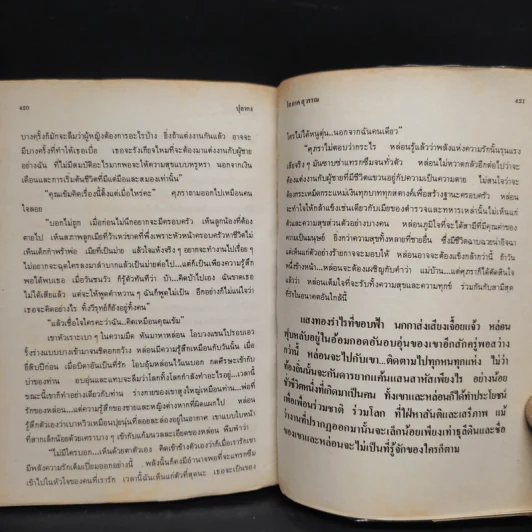 420
ปุลากง
บางครั้งก็มักจะลืมว่าผู้หญิงต้องการอะไรบ้าง ยิ่งถ้าแต่งงานกันแล้ว อาจจะ
มีบางครั้งที่ทำให้เธอเบื่อ เธอจะรังเกียจไหมที่จะต้องมาแต่งงานกับผู้ชาย
อย่างฉัน ที่ไม่มีสมบัติอะไรมากพอจะให้ความสุขแบบหรูหรา นอกจากเงิน
เดือนและการเริ่มต้นชีวิตที่มีแต่มือและสมองเท่านั้น"
"คุณเข้มคิดเรื่องนี้ตั้งแต่เมื่อไหร่คะ" ศุภราถามออกไปเหมือนคน
ใจลอย
"บอกไม่ถูก เมื่อก่อนไม่นึกอยากจะมีครอบครัว เห็นลูกน้องที่ต้อง
ตายไป เห็นสภาพลูกเมียที่ร้าวเหว่ขาดที่พึ่งเพราะหัวหน้าครอบครัวหาชีวิตไม่
เห็นเด็กกำพร้าพ่อ เมียที่เป็นม่าย แล้วใจแห้งจริง ๆ อยากจะทำงานไปเรื่อย ๆ
ไม่อยากจะฉุดใครลงมาลำบากแล้วเป็นม่ายต่อไป...แต่ก็เป็นเพียงความรู้สึก
พอได้พบเธอ เมื่อวันชนวัว ก็รู้ตัวทันทีว่า บ้า...คิดบ้าไปเอง ฉันขาดเธอ
ไม่ได้เสียแล้ว แต่จะให้พูดคำหวาน ๆ ฉันก็พูดไม่เป็น อีกอย่างก็ไม่แน่ใจว่า
เธอจะคิดอย่างไร ทั้งวิรุทธ์ก็ยังอยู่ทั้งคน"
"แล้วเชื่อใจใครคะว่าฉัน...คิดเหมือนคุณเข้ม"
เขาหัวเราะเบา ๆ ในความมืด หันมาหาหล่อน โอบวงแขนไปรอบเอว
รั้งร่างแบบบางเข้ามาจนชิดอกกว้าง หล่อนมีความรู้สึกเหมือนกับวันนั้น เมื่อ
ยี่สิบปีก่อน เมื่อบิดาอันเป็นที่รัก โอบอุ้มหล่อนไว้แนบอก กดศีรษะเข้ากับ
บ่าของท่าน อบอุ่นและแทบจะลืมว่าโลกทั้งโลกกำลังทำอะไรอยู่...เวลานี้
ขณะนี้เขาก็ทำอย่างเดียวกับท่าน ร่างกายของเขาสูงใหญ่เหมือนท่าน...พ่อที่
รักของหล่อน...แต่ความรู้สึกของชายและหญิงต่างหากที่ผิดแผกไป หล่อน
รู้สึกตัวเองว่าเบาหวิวเหมือนปุยนุ่นที่ลอยละล่องอยู่ในอากาศ เขาแนบใบหน้า
ที่สากเล็กน้อยด้วยเคราบาง ๆ เข้ากับแก้มนวลละเอียดของหล่อน พึมพำว่า
"ไม่มีใครบอก...เห็นด้วยตาตัวเอง คิดเข้าข้างตัวเองว่าก็เมื่อเรารักเขา
มีพลังความรักเต็มเปี่ยมยอดอย่างนี้ พลังนั้นก็คงมีอำนาจพอที่จะแทรกซึม
เข้าไปในหัวใจของคนที่เรารัก เวลานี้ฉันเห็นแก่ตัวที่สุดนะ เธอจะเป็นของ
โสภาค สุวรรณ
421
ใครไม่ได้หนูตุ่น..นอกจากฉันคนเดียว"
"ศุภราไม่ตอบว่ากระไร หล่อนรู้แล้วว่าพลังแห่งความรักนั้นรุนแรง
เสียจริง ๆ มันซาบซ่าแทรกซึมจนทั่วตัว หล่อนไม่หวาดกลัวอีกต่อไปว่าจะ
ต้องแต่งงานกับผู้ชายที่มีชีวิตแขวนอยู่กับความเป็นความตาย ไม่สนใจว่าจะ
ต้องกระเหม็ดกระแหม่เงินทุกบาททุกสตางค์เพื่อสร้างฐานะครอบครัว หล่อน
จะทำใจให้กล้าแข็งเช่นเดียวกับเมียของตำรวจและทหารเหล่านั้นไม่เห็นแก่
ตัวและความสุขส่วนตัวอย่างบางคน หล่อนภูมิใจที่จะได้สามีที่มีคุณค่าของ
ความเป็นมนุษย์ ยิ่งกว่าความสุขทั้งหลายที่ชายอื่น ซึ่งมีชีวิตฉาบฉวยน่าอิจฉา
แต่เห็นแก่ตัวอย่างร้ายกาจจะมอบให้ หล่อนอาจจะต้องแข็งกล้ากว่านี้ ถ้าวัน
หนึ่งข้างหน้า...หล่อนจะต้องเผชิญกับคำว่า แม่บ้าน...แต่ศุภราก็ได้ตัดสินใจ
แล้วว่า หล่อนเต็มใจที่จะรับทั้งความสุขและความทุกข์ ร่วมกันกับสามีสุด
ที่รักในอนาคตอันใกล้นี้
แสงทองรำไรที่ขอบฟ้า นกกาส่งเสียงเจื้อยแจ้ว หล่อน
หุ่นพลับอยู่ในอ้อมกอดอันอบอุ่นของเขาอีกสักครู่พอสว่าง
กว่านี้ หล่อนจะไปกับเขา...ติดตามไปทุกหนทุกแห่ง ไม่ว่า
ท้องถิ่นนั้นจะกันดารยากแค้นแสนสาหัสเพียงไร อย่างน้อย
ชั่วชีวิตหนึ่งที่เกิดมาเป็นคน ทั้งเขาและหล่อนก็ได้ทำประโยชน์
เพื่อเพื่อนร่วมชาติ ร่วมโลก ที่ใฝ่หาสันติและเสรีภาพ แม้
ว่างานที่ปรากฏออกมานั้นจะเล็กน้อยเพียงเท่าธุลีดินและชื่อ
ของเขาและหล่อนจะไม่เป็นที่รู้จักของใครก็ตาม